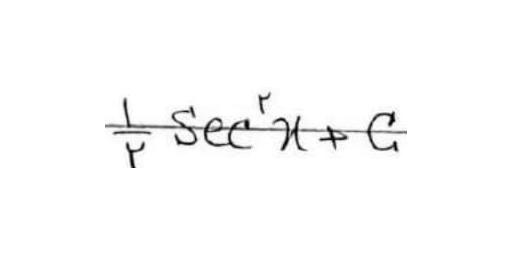 ۱/۲ Sec^۲ x + C